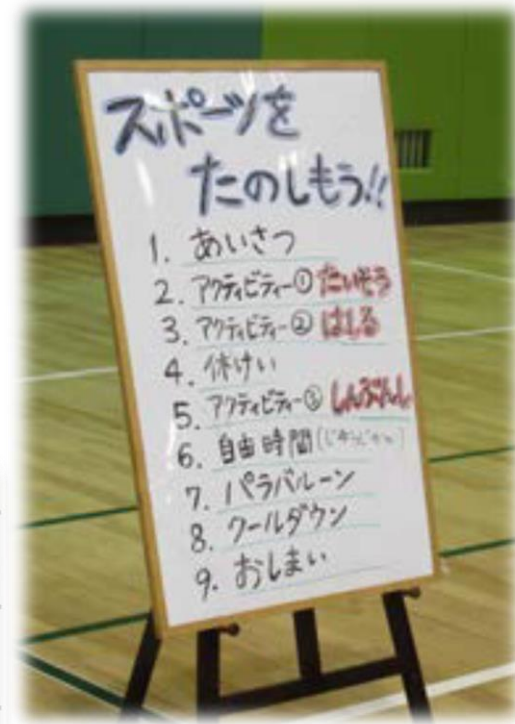 スポーツを
たのしもう!!
1. あいさつ
2. アクティビティー① たいそう
3. アクティビティー② はしる
4. 休けい
5. アクティビティー③ しんぶんし
6. 自由時間(じゆうじかん)
7. パラバルーン
8. クールダウン
9. おしまい